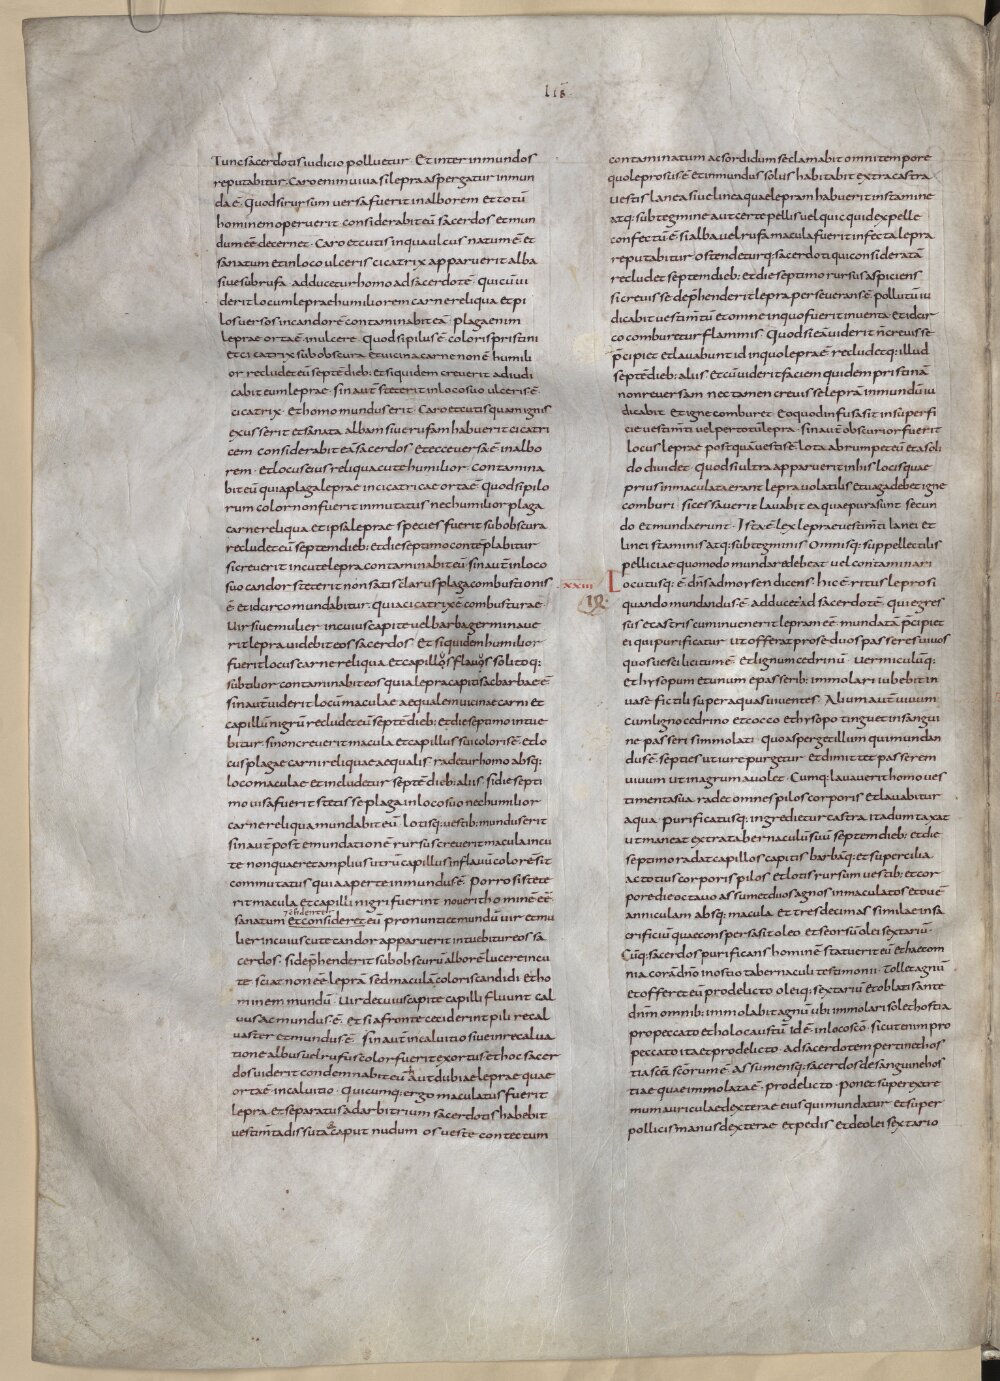 LIB
Tunc sacerdotis iudicio polluetur · Et inter inmundos
reputabitur · Caro enim uiua si lepra aspergatur inmun
da ē · Quod si rursum uersa fuerit in alborem et totū
hominem operuerit · considerabit eū sacerdos et mun
dum eē decernet · Caro et cutis in qua ulcus natum ē · et
sanatum et in loco ulceris cicatrix apparuerit alba
siue subrufa · adducetur homo ad sacerdotē · Qui cū ui
derit locum leprae humiliorem carne reliqua et pi
los uersos in candorē contaminabit eā · plaga enim
leprae orta ē · in ulcere · Quod si pilus ē · coloris pristini
et cicatrix subobscura et uicina carne non ē humili
or recludet eū septē dieb; et siquidem creuerit adiudi
cabit eum leprae · sin aūt steterit in loco suo ulceris ē ·
cicatrix · Et homo mundus erit · Caro et cutis quam ignis
exusserit et sanata albam siue rufam habuerit cicatri
cem considerabit eā sacerdos et ecce uersa ē in albo
rem · et locus eius reliqua cute humilior · Contamina
bit eū quia plaga leprae in cicatricae orta ē · Quod si pilo
rum color non fuerit inmutatus nec humilior plaga
carne reliqua et ipsa leprae species fuerit subobscura
recludet eū septem dieb; et die septimo contēplabitur
si creuerit in cute lepra contaminabit eū sin aūt in loco
suo candor steterit non satis clarus plaga combustionis
ē et idcirco mundabitur · quia cicatrix ē combusturae ·
Uir siue mulier in cuius capite uel barba germinaue
rit lepra uidebit eos sacerdos · Et siquidem humilior
fuerit locus carne reliqua et capillos flauos solitoq;
subtilior contaminabit eos quia lepra capitis ac barbae ē ·
sin aūt uiderit locū maculae aequalem uicinae carni et
capillū nigrū recludet eū septē dieb; et die septimo intue
bitur si non creuerit macula et capillus sui coloris ē · et lo
cus plagae carni reliquae aequalis · radetur homo absq;
loco maculae et includetur septē dieb; aliis · si die septi
mo uisa fuerit stetisse plaga in loco suo nec humilior
carne reliqua mundabit eū · Lotisq; uestib; mundus erit
sin aūt post emundationē rursus creuerit macula in cu
te non quaeret amplius utrū capillus in flauū colorē sit
commutatus quia aperte inmundus ē · Porro si stete
rit macula et capilli nigri fuerint nouerit hominē eē
sanatum et consideret eū pronuntiet mundū uir et mu
lier in cuius cute candor apparuerit intuebitur eos sa
cerdos · si deprehenderit subobscurū alborē lucere in cu
te sciat non eē leprā sed maculā coloris candidi et ho
minem mundū · Uir de cuius capite capilli fluunt cal
uus ac mundus ē · et si a fronte ceciderint pili recal
uaster et mundus ē · Sin aūt in caluitio siue in recalua
tione albus uel rufus color fuerit exortus et hoc sacer
dos uiderit condemnabit eū aūt dubiae leprae quae
orta ē · in caluitio · Quicumq; ergo maculatus fuerit
lepra · et separatus ad arbitrium sacerdotis habebit
uestimta dissuta caput nudum os ueste contectum
contaminatum ac sordidum se clamabit omni tempore
quo leprosus ē · et inmundus solus habitabit extra castra
uestis lanea siue linea quae lepram habuerit in stamine
atq; subtegmine aut certe pellis uel quicquid ex pelle
confectū ē · si alba uel rufa macula fuerit infecta lepra
reputabitur · ostendeturq; sacerdoti qui consideratā
recludet septem dieb; et die septimo rursus aspiciens
si creuisse dep̄henderit lepra perseuerans ē · pollutū iu
dicabit uestimtū et omne in quo fuerit inuenta et idcir
co comburetur flammis · Quod si eā uiderit n̄ creuisse
p̄cipiet et lauabunt id in quo lepra ē · recludetq; illud
septē dieb; aliis et cū uiderit faciem quidem pristinā
non reuersam nec tamen creuisse leprā inmundū iu
dicabit · et igne comburet · Eo quod infusa sit in superfi
cie uestimti uel per totū lepra · sin aūt obscurior fuerit
locus leprae postquā uestis ē lota abrumpet eū et a soli
do diuidet · Quod si ultra apparuerit in his locis quae
prius inmaculata erant lepra uolatilis et uaga debet igne
comburi · si cessauerit lauabit ea quae pura sunt secun
do et munda erunt · Ista ē lex leprae uestimti lanei et
linei staminis atq; subteginis · Omnisq; suppellectilis
pelliciae quomodo mundare debeat uel contaminari
XXIII Locutusq; ē dns̄ ad mosen dicens · hic ē ritus leprosi
12 quando mundandus ē · adducet ad sacerdotē · qui egres
sus e castris cum inuenerit lepram eē mundatā p̄cipiet
ei qui purificatur ut offerat pro se duos passeres uiuos
quos uesci licitum ē · Et lignum cedrinū · uermiculūq;
et hysopum et unum e passerib; immolari iubebit in
uase fictili super aquas uiuentes · Alium aūt uiuum
cum ligno cedrino et cocco et hysopo tinguet in sangui
ne passeris immolati · quo asperget illum qui mundan
dus ē · septies ut iure purgetur · et dimittet passerem
uiuum ut in agrum auolet · Cumq; lauauerit homo ues
timenta sua radet omnes pilos corporis et lauabitur
aqua · purificatusq; ingredietur castra ita dum taxat
ut maneat extra tabernaculū suū septem dieb; et die
septimo radat capillos capitis barbāq; et supercilia
ac totius corporis pilos et lotis rursum uestib; et cor
pore die octauo assumet duos agnos inmaculatos et ouē
anniculam absq; macula et tres decimas similae in sa
crificiū quae conspersa sit oleo et seorsū olei sextariū ·
Cūq; sacerdos purificans hominē statuerit eū et haec om
nia corā dn̄o in ostio tabernaculi testimonii · Tollet agnū
et offeret eū pro delicto oleiq; sextariū et oblatis ante
dn̄m omnib; immolabit agnū ubi immolari solet hostia
pro peccato et holocaustū id ē · in loco sc̄o · sicut enim pro
peccato ita et pro delicto · ad sacerdotem pertinet hos
tia sc̄a sc̄orum ē · assumensq; sacerdos de sanguine hos
tiae quae immolata ē · pro delicto · ponet super extre
mum auriculae dexterae eius qui mundatur et super
pollicis manus dexterae et pedis et de olei sextario